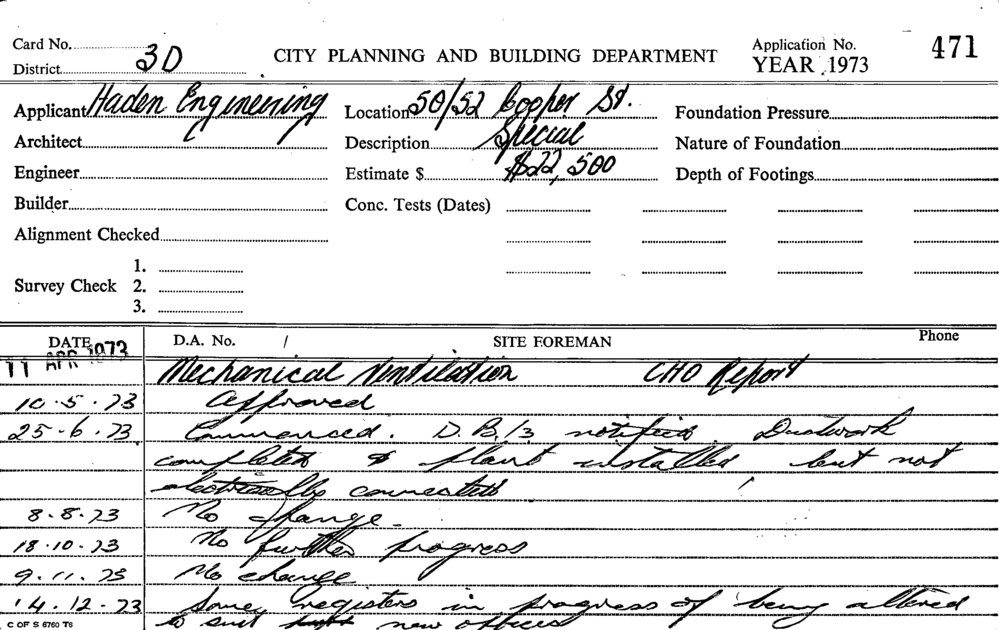 Card No. 3D CITY PLANNING AND BUILDING DEPARTMENT Application No. 471
District YEAR 1973
Applicant Haden Engineering Location 50/52 Cooper St. Foundation Pressure
Architect Description Special Nature of Foundation
Engineer Estimate $ $22,500 Depth of Footings
Builder Conc. Tests (Dates)
Alignment Checked
1.
Survey Check 2.
3.
DATE D.A. No. / SITE FOREMAN Phone
11 APR 1973 Mechanical Ventilation CHO Report
10.5.73 Approved
25.6.73 Commenced. D.B./3 notified. Ductwork
completed & plant installed but not
electrically connected
8.8.73 No change.
18.10.73 No further progress
9.11.73 No change
14.12.73 Some registers in progress of being altered
to suit new offices
C OF S 6760 T6